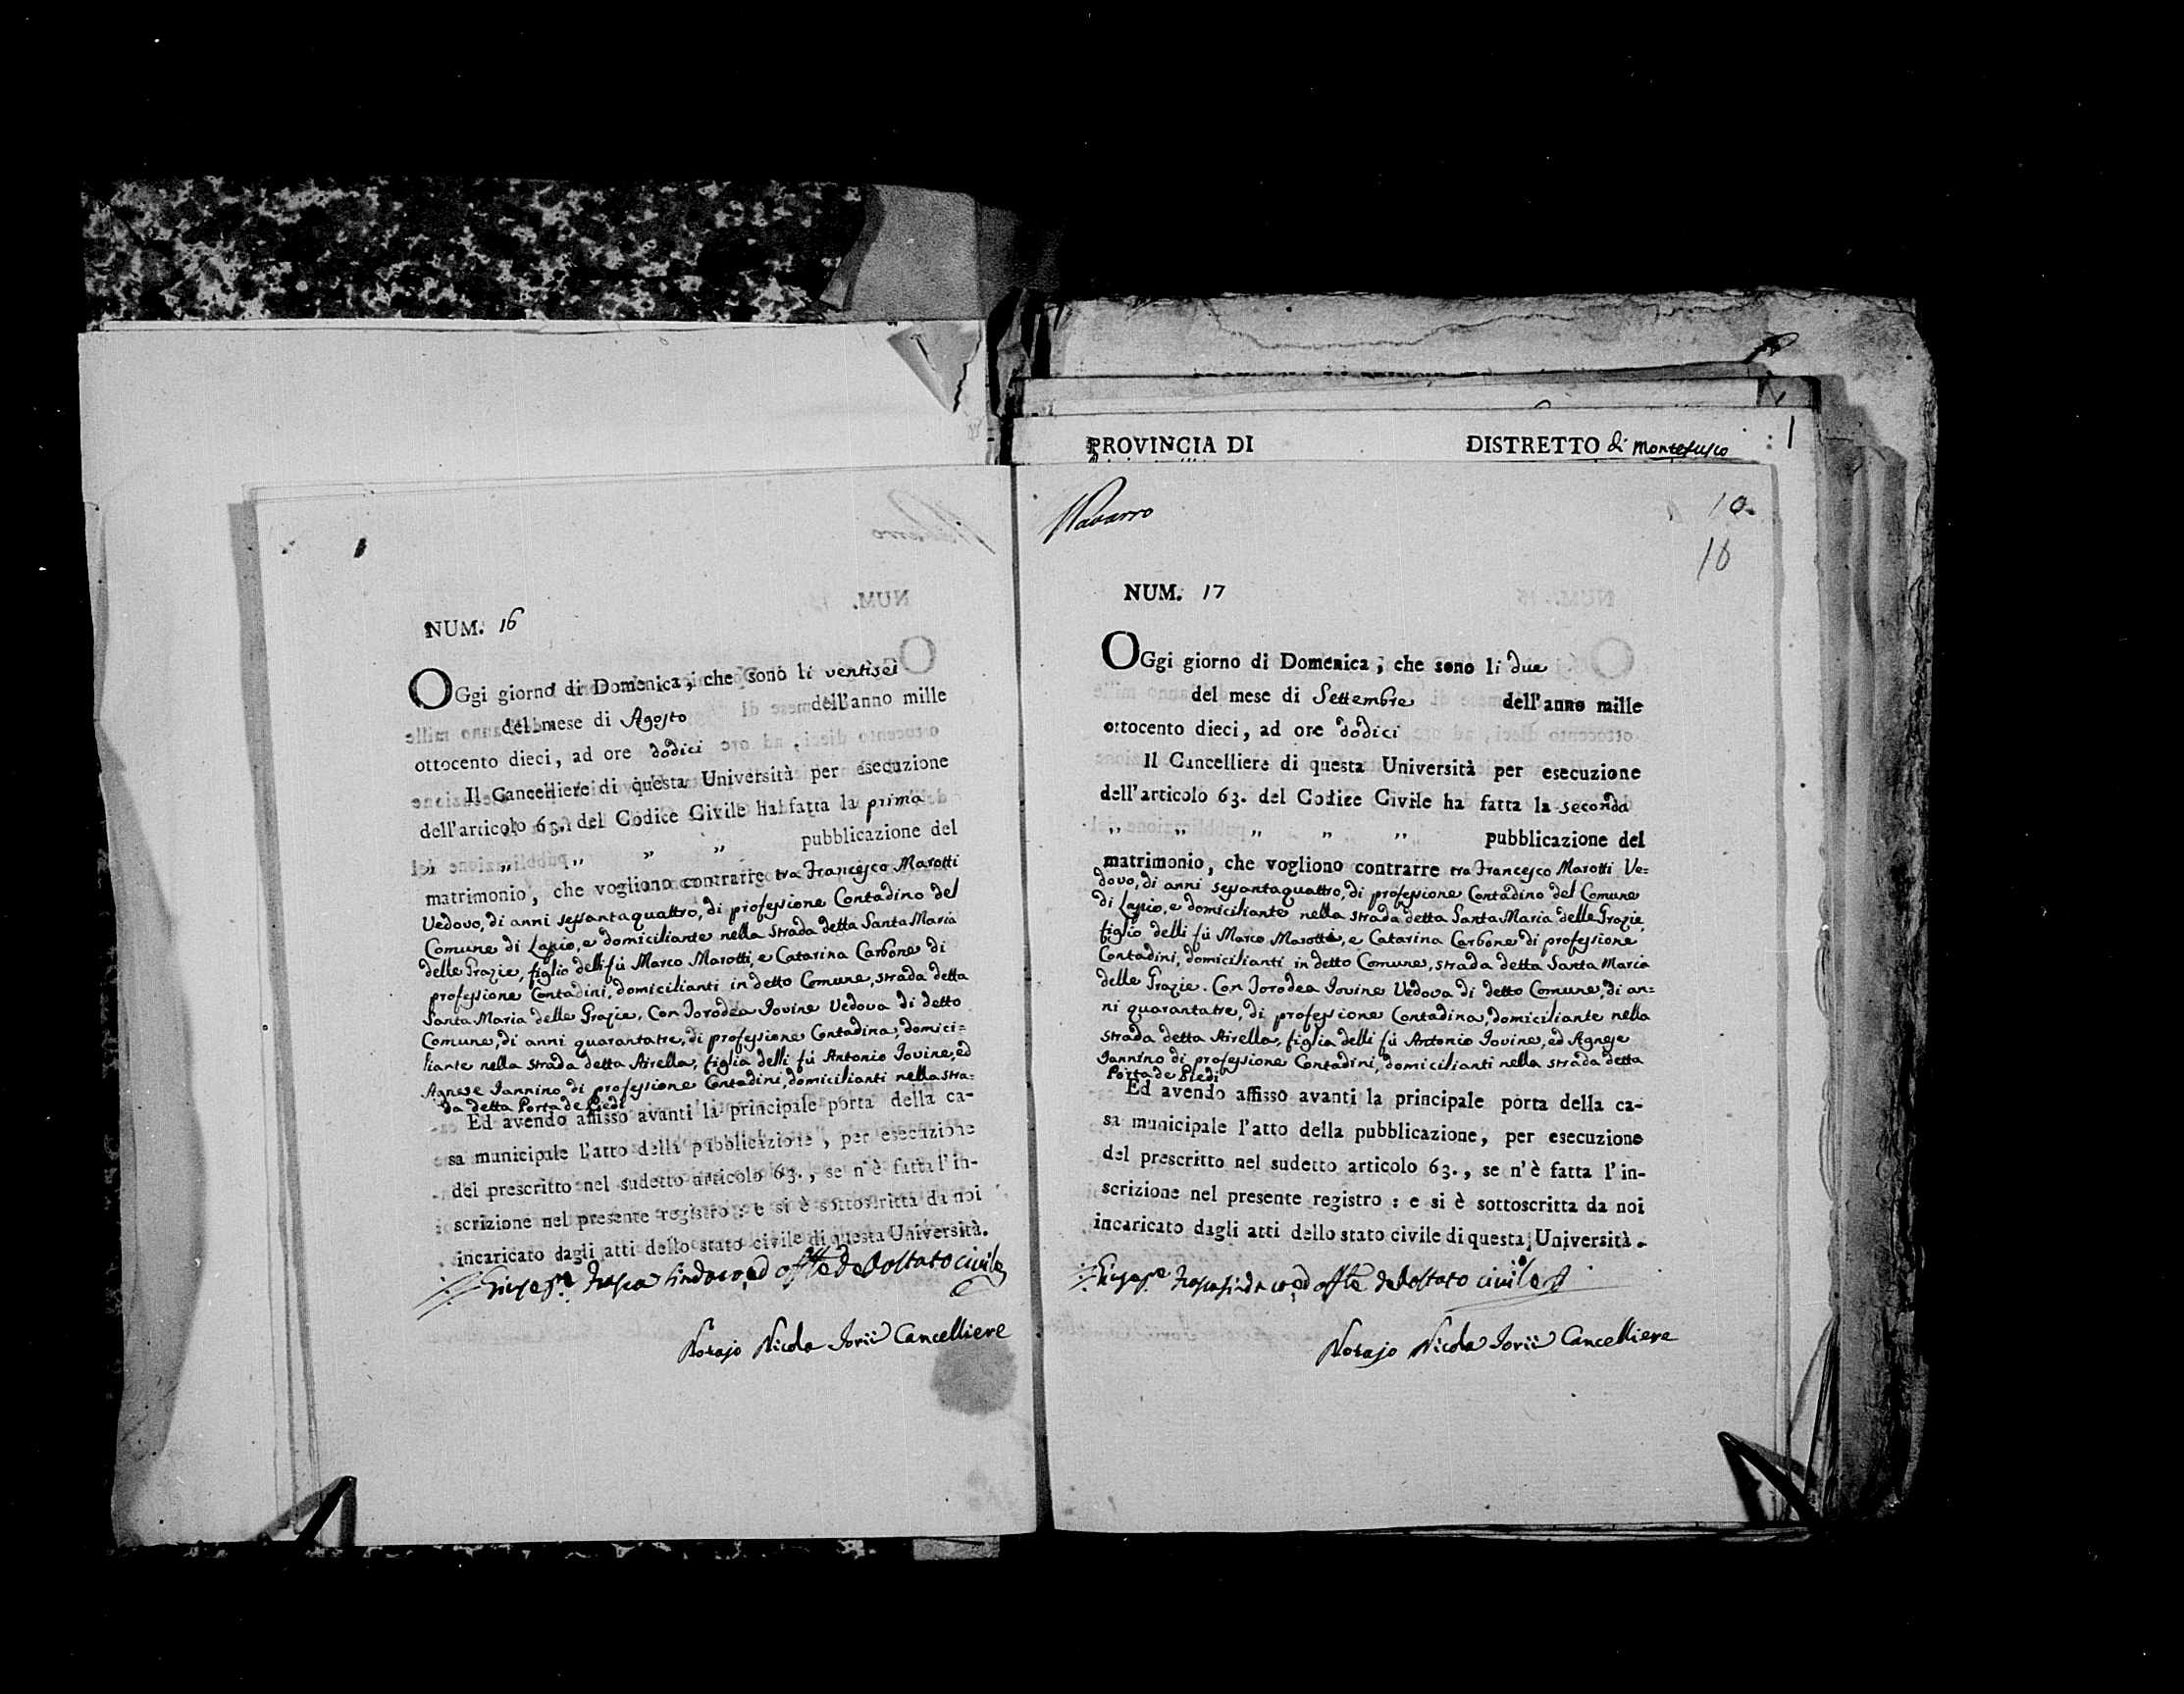 NUM. 16
OGgi giorno di Domenica, che sono li ventisei
del mese di Agosto dell'anno mille
ottocento dieci, ad ore dodici
Il Cancelliere di questa Università per esecuzione
dell'articolo 63. del Codice Civile ha fatta la prima
" " " " pubblicazione del
matrimonio, che vogliono contrarre tra Francesco Marotti
Vedovo, di anni sessantaquattro, di professione Contadino del
Comune di Lapio, e domiciliante nella strada detta Santa Maria
delle Grazie, figlio delli fù Marco Marotti, e Catarina Carbone di
professione Contadini, domicilianti in detto Comune, strada detta
Santa Maria delle Grazie. Con Dorodea Iovine Vedova di detto
Comune, di anni quarantatre, di professione Contadina, domici=
liante nella strada detta Airella, figlia delli fù Antonio Iovine, ed
Agnese Iannino di professione Contadini, domicilianti nella stra=
da detta Porta de Piedi
Ed avendo affisso avanti la principale porta della ca-
sa municipale l'atto della pubblicazione, per esecuzione
del prescritto nel sudetto articolo 63., se n'è fatta l'in-
scrizione nel presente registro : e si è sottoscritta da noi
incaricato dagli atti dello stato civile di questa Università.
Sindaco, ed offle dello stato civile
Notajo Nicola Iorii Cancelliere
PROVINCIA DI DISTRETTO di Montefusco 1
Navarro
10
10
NUM. 17
OGgi giorno di Domenica, che sono li due
del mese di Settembre dell'anno mille
ottocento dieci, ad ore dodici
Il Cancelliere di questa Università per esecuzione
dell'articolo 63. del Codice Civile ha fatta la seconda
" " " " " pubblicazione del
matrimonio, che vogliono contrarre tra Francesco Marotti Ve=
dovo, di anni sessantaquattro, di professione Contadino del Comune
di Lapio, e domiciliante nella strada detta Santa Maria delle Grazie,
figlio delli fù Marco Marotti, e Catarina Carbone di professione
Contadini, domicilianti in detto Comune, strada detta Santa Maria
delle Grazie. Con Dorodea Iovine Vedova di detto Comune, di an=
ni quarantatre, di professione Contadina, domiciliante nella
strada detta Airella, figlia delli fù Antonio Iovine, ed Agnese
Iannino di professione Contadini, domicilianti nella strada detta
Porta de Piedi
Ed avendo affisso avanti la principale porta della ca-
sa municipale l'atto della pubblicazione, per esecuzione
del prescritto nel sudetto articolo 63., se n'è fatta l'in-
scrizione nel presente registro : e si è sottoscritta da noi
incaricato dagli atti dello stato civile di questa Università.
Sindaco, ed offle dello stato civile
Notajo Nicola Iorii Cancelliere